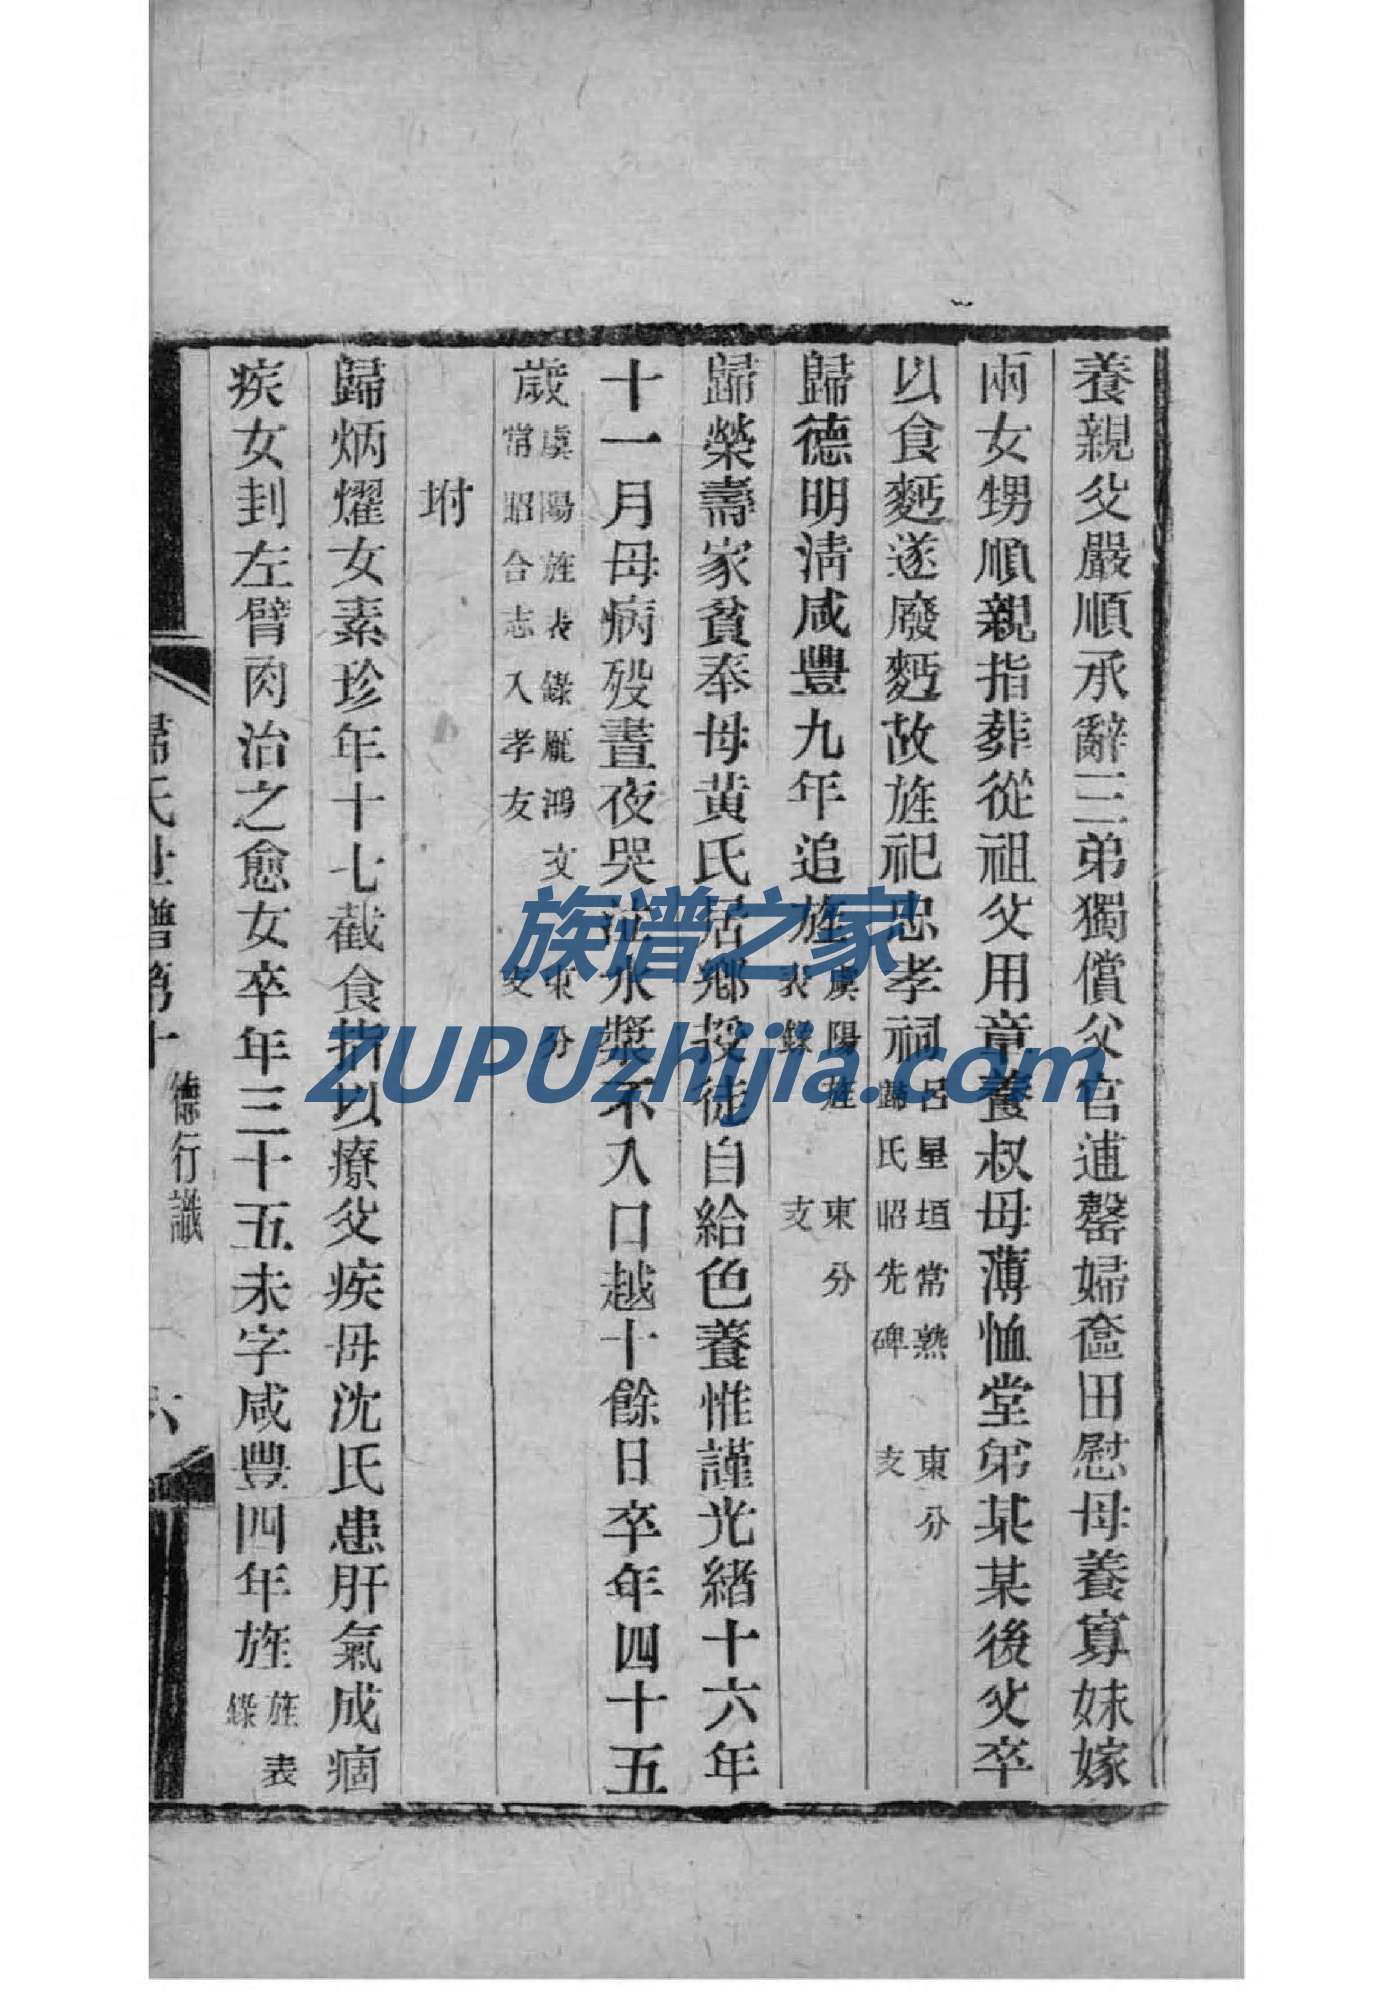 養親父嚴順承辭三弟獨償父官逋罄婦奩田慰母養寡妹嫁
兩女甥順親指葬從祖父用章養叔母薄恤堂弟某某後父卒
以食麪遂廢麪故旌祀忠孝祠呂星垣常熟歸氏昭先碑 東分支
歸德明清咸豐九年追旌虞陽旌表錄 東分支
歸榮壽家貧奉母黃氏居鄉授徒自給色養惟謹光緒十六年
十一月母病歿晝夜哭泣水漿不入口越十餘日卒年四十五
歲虞陽旌表錄龐鴻文常昭合志入孝友 東分支
坿
歸炳燿女素珍年十七截食指以療父疾母沈氏患肝氣成痼
疾女刲左臂肉治之愈女卒年三十五未字咸豐四年旌旌表錄
歸氏世譜第十 德行識 六
族谱之家
ZUPUzhijia.com